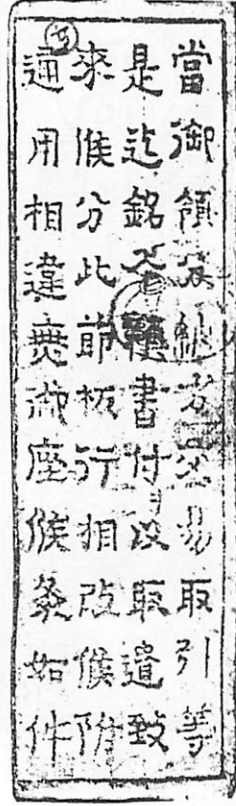 當御領及納方並共取引等
是迄銘々書付以取遣致
来候分此節板行相改候附
通用相違無御座候条如件